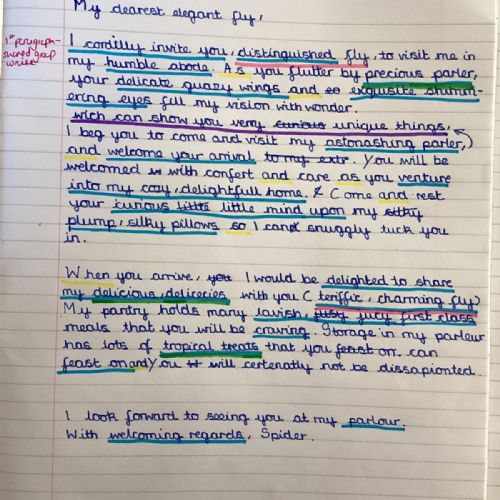 My dearest elegant fly,
1st paragraph-
shared group
write
I cordilly invite you, distinguished fly, to visit me in
my humble abode. As you flutter by precious parler,
your delicate guazy wings and so exquisite shimm-
ering eyes fill my vision with wonder.
wich can show you very curious unique things,
I beg you to come and visit my astonashing parler,
and welcome your arrival to my extr. You will be
welcomed with confert and care as you venture
into my cozy, delightfull home. Come and rest
your curious little little mind upon my silky
plump, silky pillows so I can snuggly tuck you
in.
When you arrive, you I would be delighted to share
my delicious delicecies with you (teriffic, charming fly)
My pantry holds many lavish, jusy jucy first class
meals that you will be craving. Storage in my parleur
has lots of tropical treats that you feast on. can
feast on and You will certenatly not be dissapionted.
I look forward to seeing you at my parlour.
With welcoming regards, Spider.